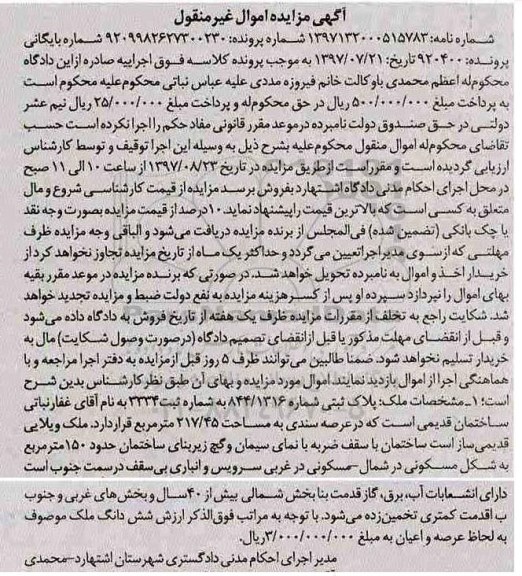 آگهی مزایده اموال غیرمنقول
شماره نامه: ۱۳۹۷۱۳۲۰۰۰۵۱۵۷۸۳ شماره پرونده: ۹۲۰۹۹۸۲۶۲۷۳۰۰۲۳۰ شماره بایگانی
پرونده: ۹۲۰۴۰۰ تاریخ: ۱۳۹۷/۰۷/۲۱ به موجب پرونده کلاسه فوق اجراییه صادره ازاین دادگاه
محکوم‌له اعظم محمدی باوکالت خانم فیروزه مددی علیه عباس نباتی محکوم‌علیه محکوم است
به پرداخت مبلغ ۵۰۰/۰۰۰/۰۰۰ ریال در حق محکوم‌له و پرداخت مبلغ ۲۵/۰۰۰/۰۰۰ ریال نیم عشر
دولتی در حق صندوق دولت نامبرده درموعد مقرر قانونی مفاد حکم را اجرا نکرده است حسب
تقاضای محکوم‌له اموال منقول محکوم‌علیه بشرح ذیل به وسیله این اجرا توقیف و توسط کارشناس
ارزیابی گردیده است و مقرر است از طریق مزایده در تاریخ ۱۳۹۷/۰۸/۲۳ از ساعت ۱۰ الی ۱۱ صبح
در محل اجرای احکام مدنی دادگاه اشتهارد بفروش برسد مزایده از قیمت کارشناسی شروع و مال
متعلق به کسی است که بالاترین قیمت را پیشنهاد نماید. ۱۰درصد از قیمت مزایده بصورت وجه نقد
یا چک بانکی (تضمین شده) فی‌المجلس از برنده مزایده دریافت می‌شود و الباقی وجه مزایده ظرف
مهلتی که ازسوی مدیراجراتعیین می‌گردد و حداکثر یک ماه از تاریخ مزایده تجاوز نخواهد کرد از
خریدار اخذ و اموال به نامبرده تحویل خواهد شد. در صورتی که برنده مزایده در موعد مقرر بقیه
بهای اموال را نپردازد سپرده او پس از کسرهزینه مزایده به نفع دولت ضبط و مزایده تجدید خواهد
شد. شکایت راجع به تخلف از مقررات مزایده ظرف یک هفته از تاریخ فروش به دادگاه داده می‌شود
و قبل از انقضای مهلت مذکور یا قبل ازانقضای تصمیم دادگاه (درصورت وصول شکایت) مال به
خریدار تسلیم نخواهد شود. ضمنا طالبین می‌توانند ظرف ۵ روز قبل ازمزایده به دفتر اجرا مراجعه و با
هماهنگی اجرا از اموال بازدید نمایند اموال مورد مزایده و بهای آن طبق نظر کارشناس بدین شرح
است؛ ۱ـ مشخصات ملک: پلاک ثبتی شماره ۸۴۴/۱۳۱۶ به شماره ثبت ۳۳۳۴ به نام آقای غفارنباتی
ساختمان قدیمی است که درعرصه سندی به مساحت ۲۱۷/۴۵ مترمربع قراردارد. ملک ویلایی
قدیمی‌ساز است ساختمان با سقف ضربه با نمای سیمان و گچ زیربنای ساختمان حدود ۱۵۰مترمربع
به شکل مسکونی در شمال ـ مسکونی در غربی سرویس و انباری بی‌سقف درسمت جنوب است
دارای انشعابات آب، برق، گاز قدمت بنا بخش شمالی بیش از ۴۰سال و بخش‌های غربی و جنوب
ب اقدمت کمتری تخمین‌زده می‌شود. با توجه به مراتب فوق‌الذکر ارزش شش دانگ ملک موصوف
به لحاظ عرصه و اعیان به مبلغ ۳/۰۰۰/۰۰۰/۰۰۰ریال.
مدیر اجرای احکام مدنی دادگستری شهرستان اشتهارد ـ محمدی